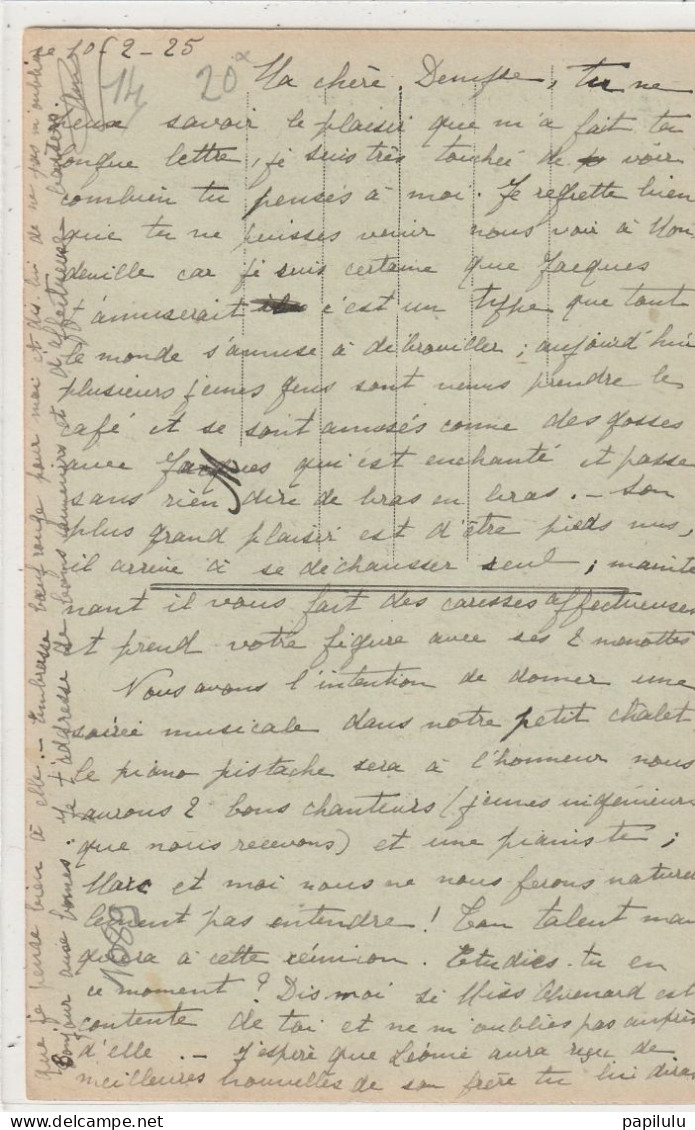 10-2-25
14
20
Ma chère Denyse, tu ne
peux savoir le plaisir que m'a fait ta
longue lettre, je suis très touchée de voir
combien tu penses à moi. Je regrette bien
que tu ne puisses venir nous voir à Mon
deville car je suis certaine que Jacques
t'amuserait c'est un type que tout
le monde s'amuse à débrouiller ; aujourd'hui
plusieurs jeunes gens sont venus prendre le
café et se sont amusés comme des gosses
avec Jacques qui est enchanté et passe
sans rien dire de bras en bras. - Son
plus grand plaisir est d'être pieds nus,
il arrive à se déchausser seul ; mainte
nant il vous fait des caresses affectueuses
et prend votre figure avec ses 2 menottes
Nous avons l'intention de donner une
soirée musicale dans notre petit chalet
le piano pistache sera à l'honneur nous
aurons 2 bons chanteurs (jeunes ingénieurs
que nous recevons) et une pianiste ;
Marc et moi nous ne nous ferons naturel
lement pas entendre ! Ton talent man
quera à cette réunion. Etudies-tu en
ce moment ? Dis moi si Miss est
contente de toi et ne m'oublies pas auprès
d'elle. - J'espère que Léonie aura reçu de
meilleures nouvelles de son frère tu lui diras
que je pense bien à elle. - Embrasse bœuf rouge pour moi et dis lui de ne pas m'oublier
Bonjour aux bonnes. Je t'adresse de bons souvenirs et d'affectueux baisers.
papilulu